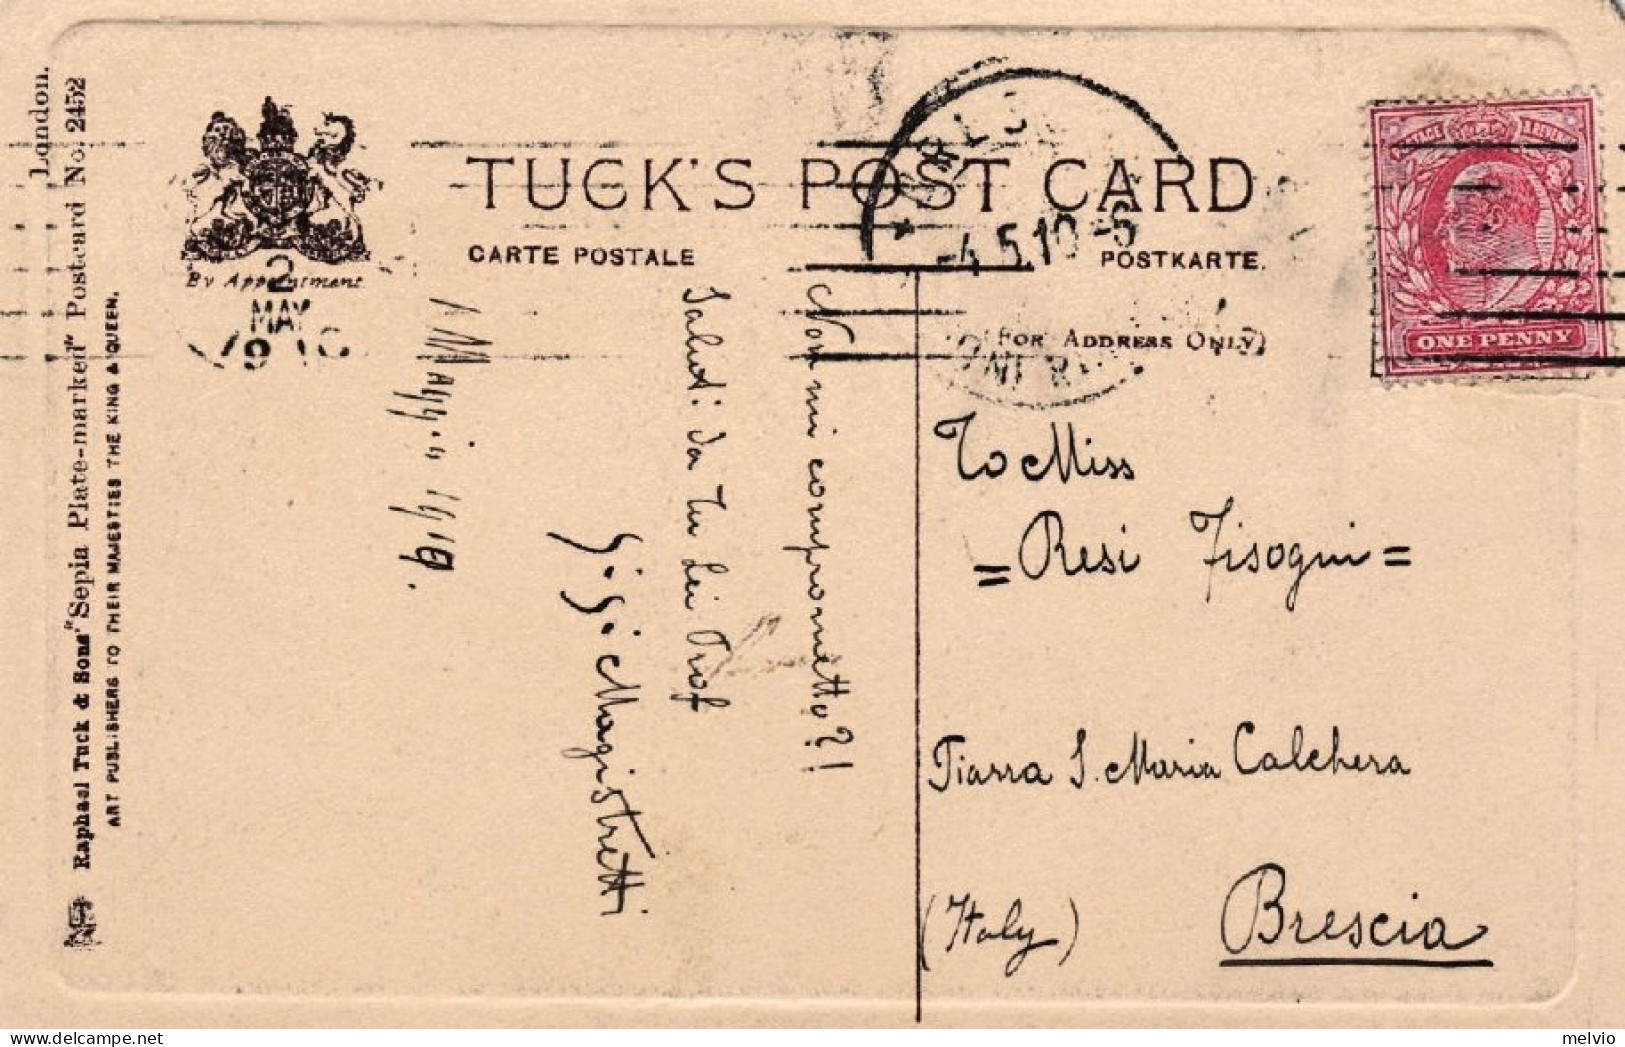 TUCK'S POST CARD
CARTE POSTALE
POSTKARTE.
(FOR ADDRESS ONLY)
By Appointment.
2
MAY
-4.5.10-6
ONE PENNY
Raphael Tuck & Sons' "Sepia Plate-marked" Postcard No. 2452
London.
ART PUBLISHERS TO THEIR MAJESTIES THE KING & QUEEN.
Non mi comprometto?!
Saluti da
Prof
G. G. Magistretti
1 Maggio 1910.
To Miss
= Resi Fisogni =
Piazza S. Maria Calchera
(Italy) Brescia
melvio